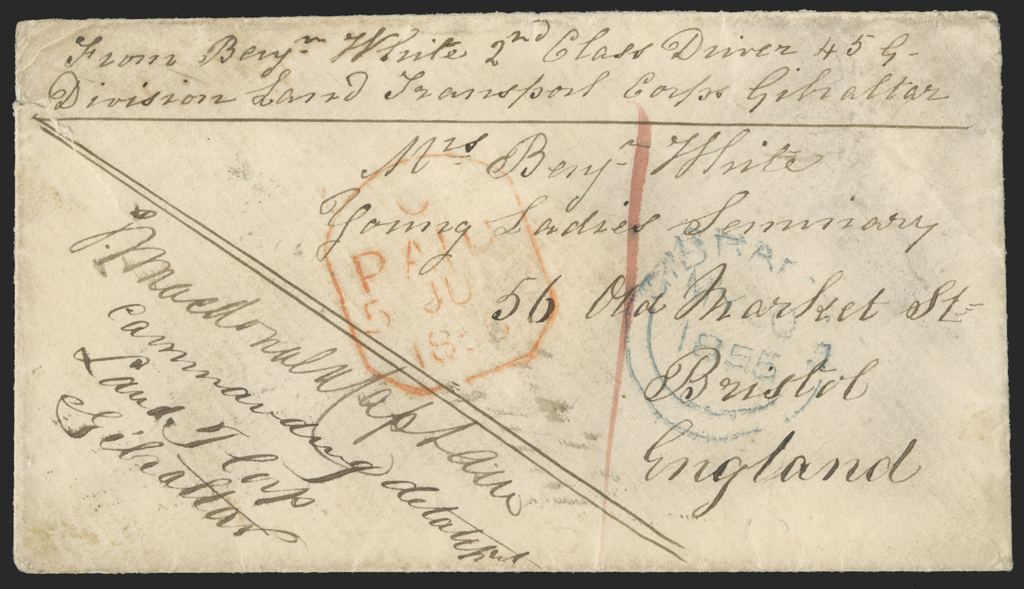 From Benjn White 2nd Class Driver 45 G-
Division Land Transport Corps Gibraltar
Mrs Benjn White
Young Ladies Seminary
56 Old Market St
Bristol
England
Macdonald Captain
Commanding detachmt
Land T Corp
Gibraltar
PAID
5 JU
1855
GIBRALTAR
1855